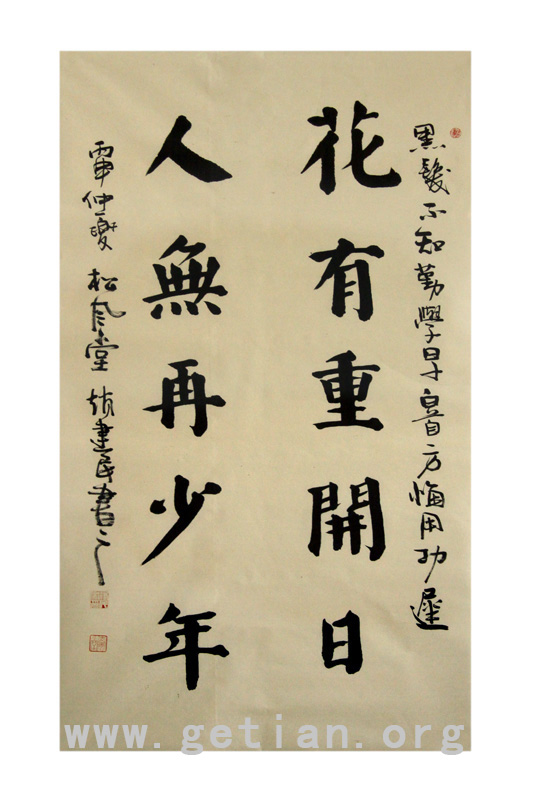 黑髮不知勤學早白首方悔用功遲
花有重開日
人無再少年
丙申仲夏 松風堂 趙建民書之
www.getian.org